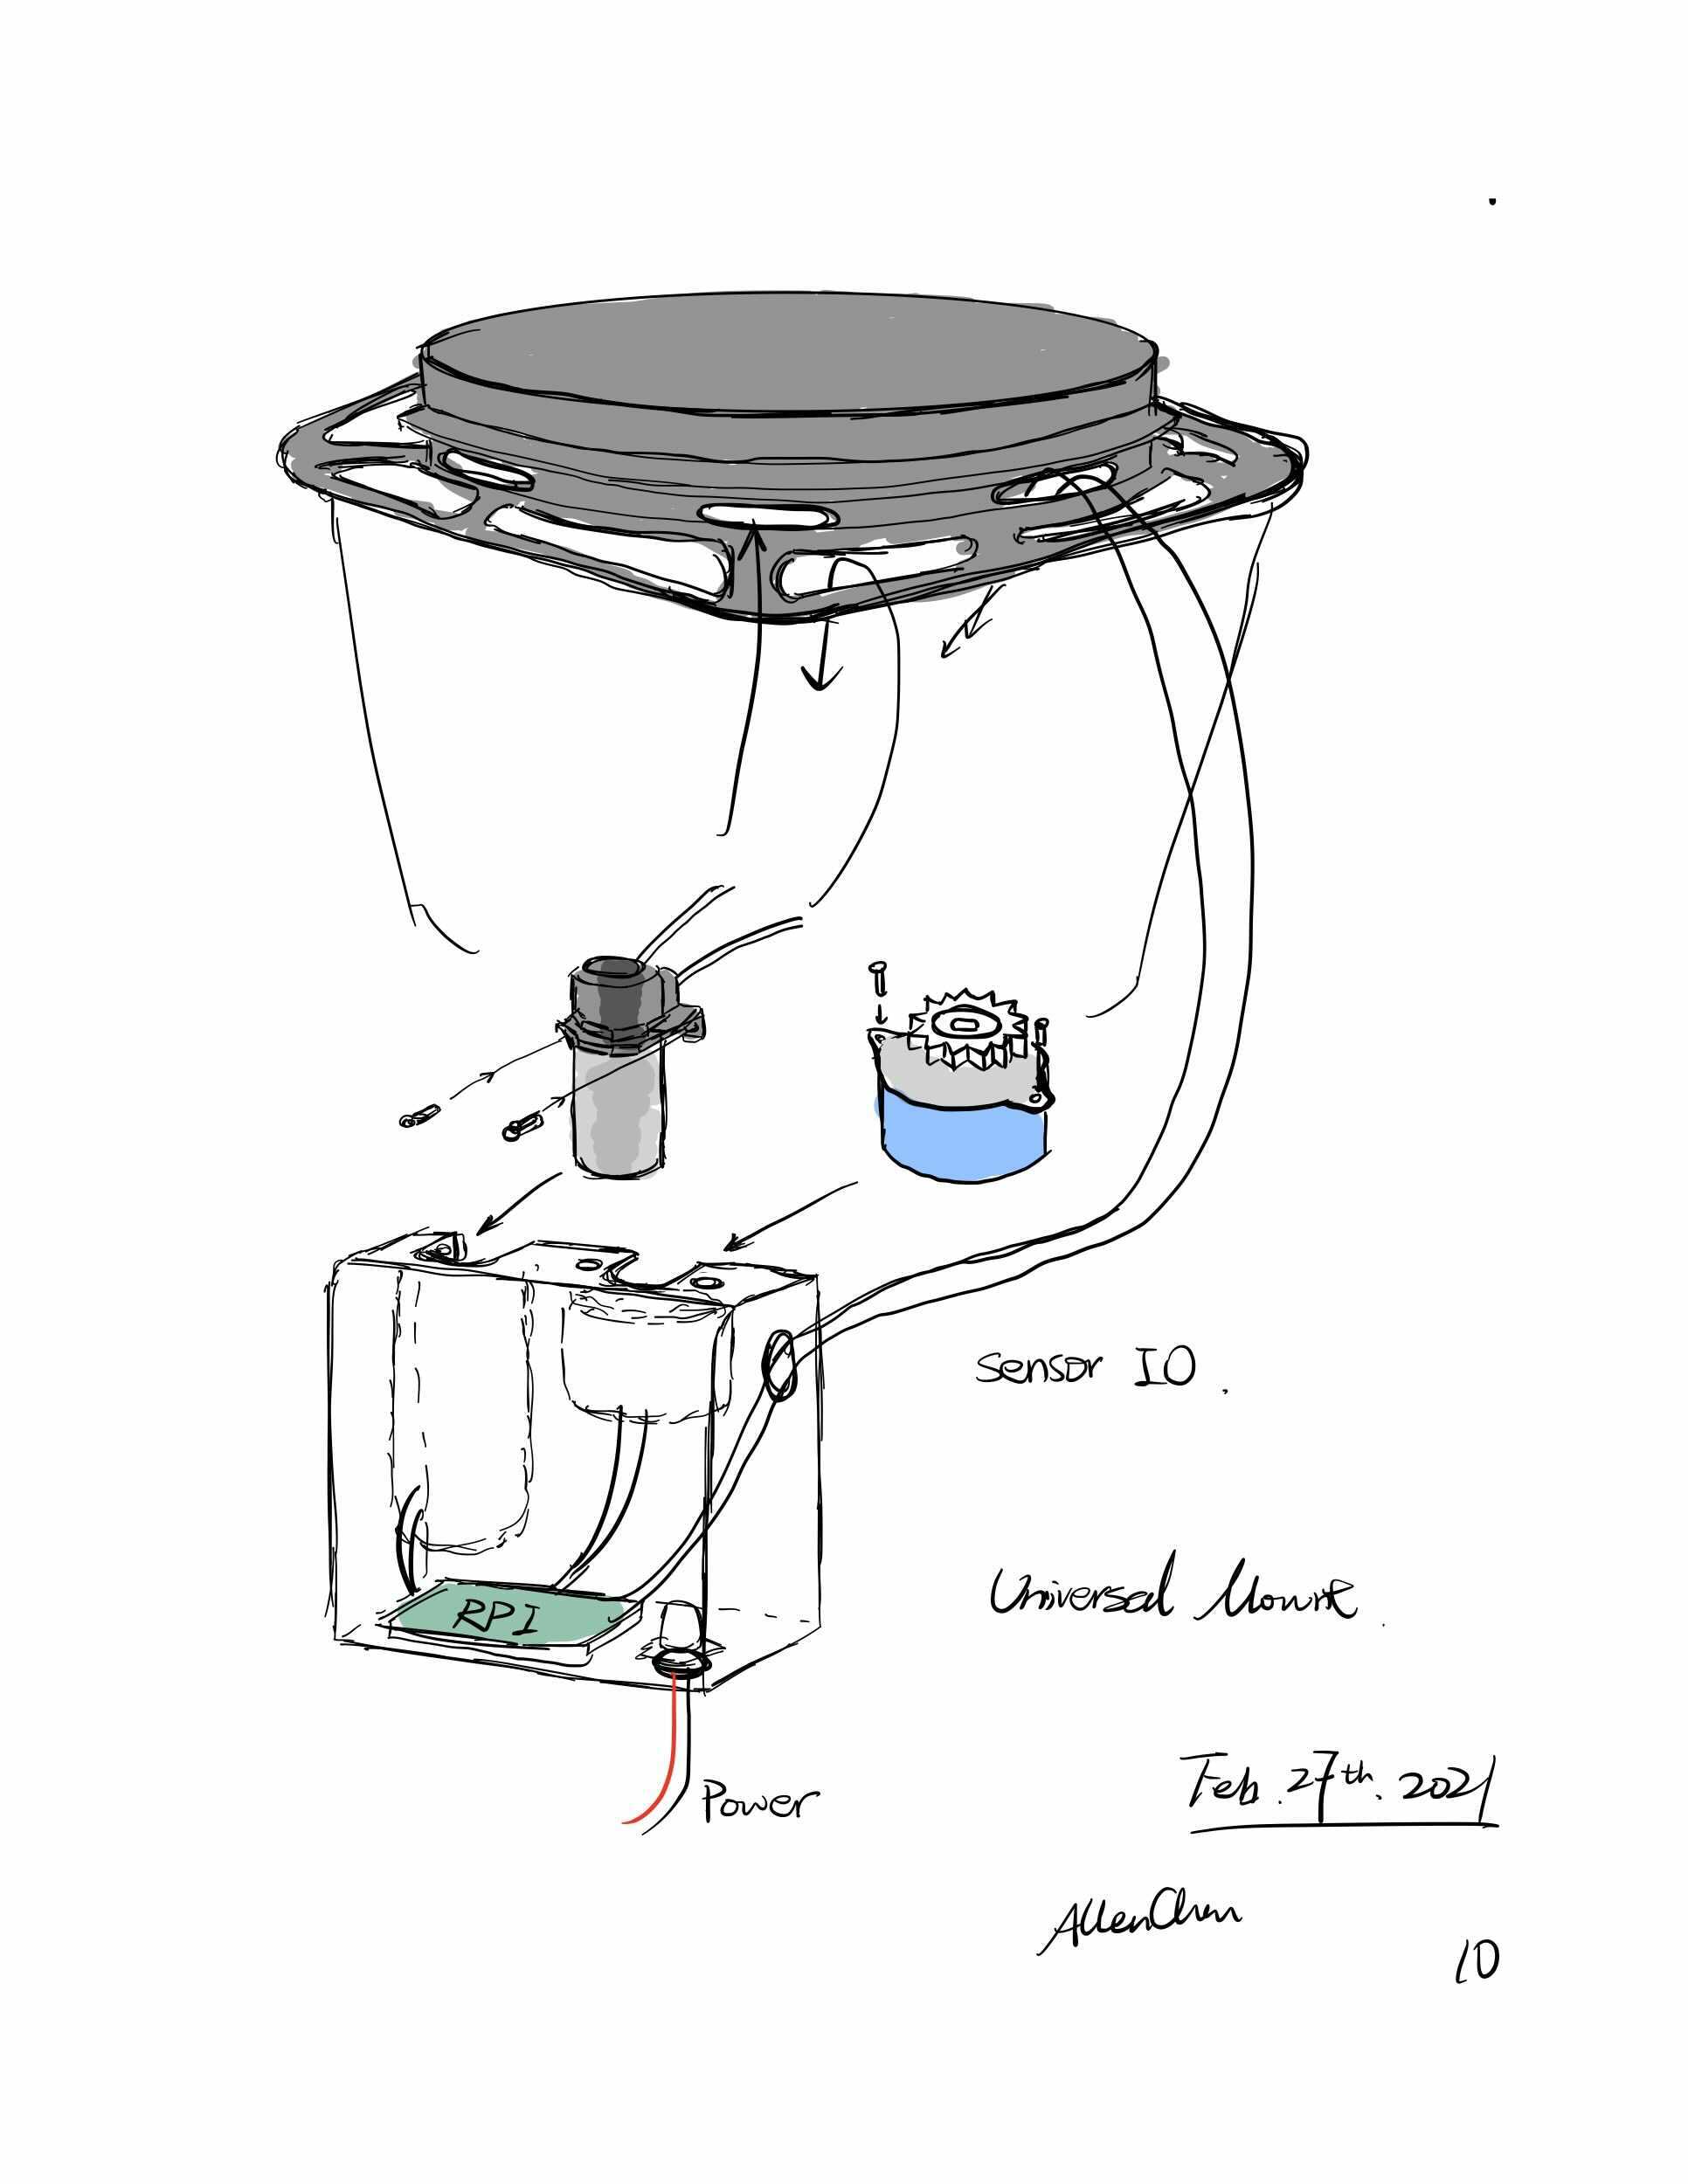 Sensor IO.
RPI
Universal Mount.
Power
Feb. 27th. 2021
AllenChen
10